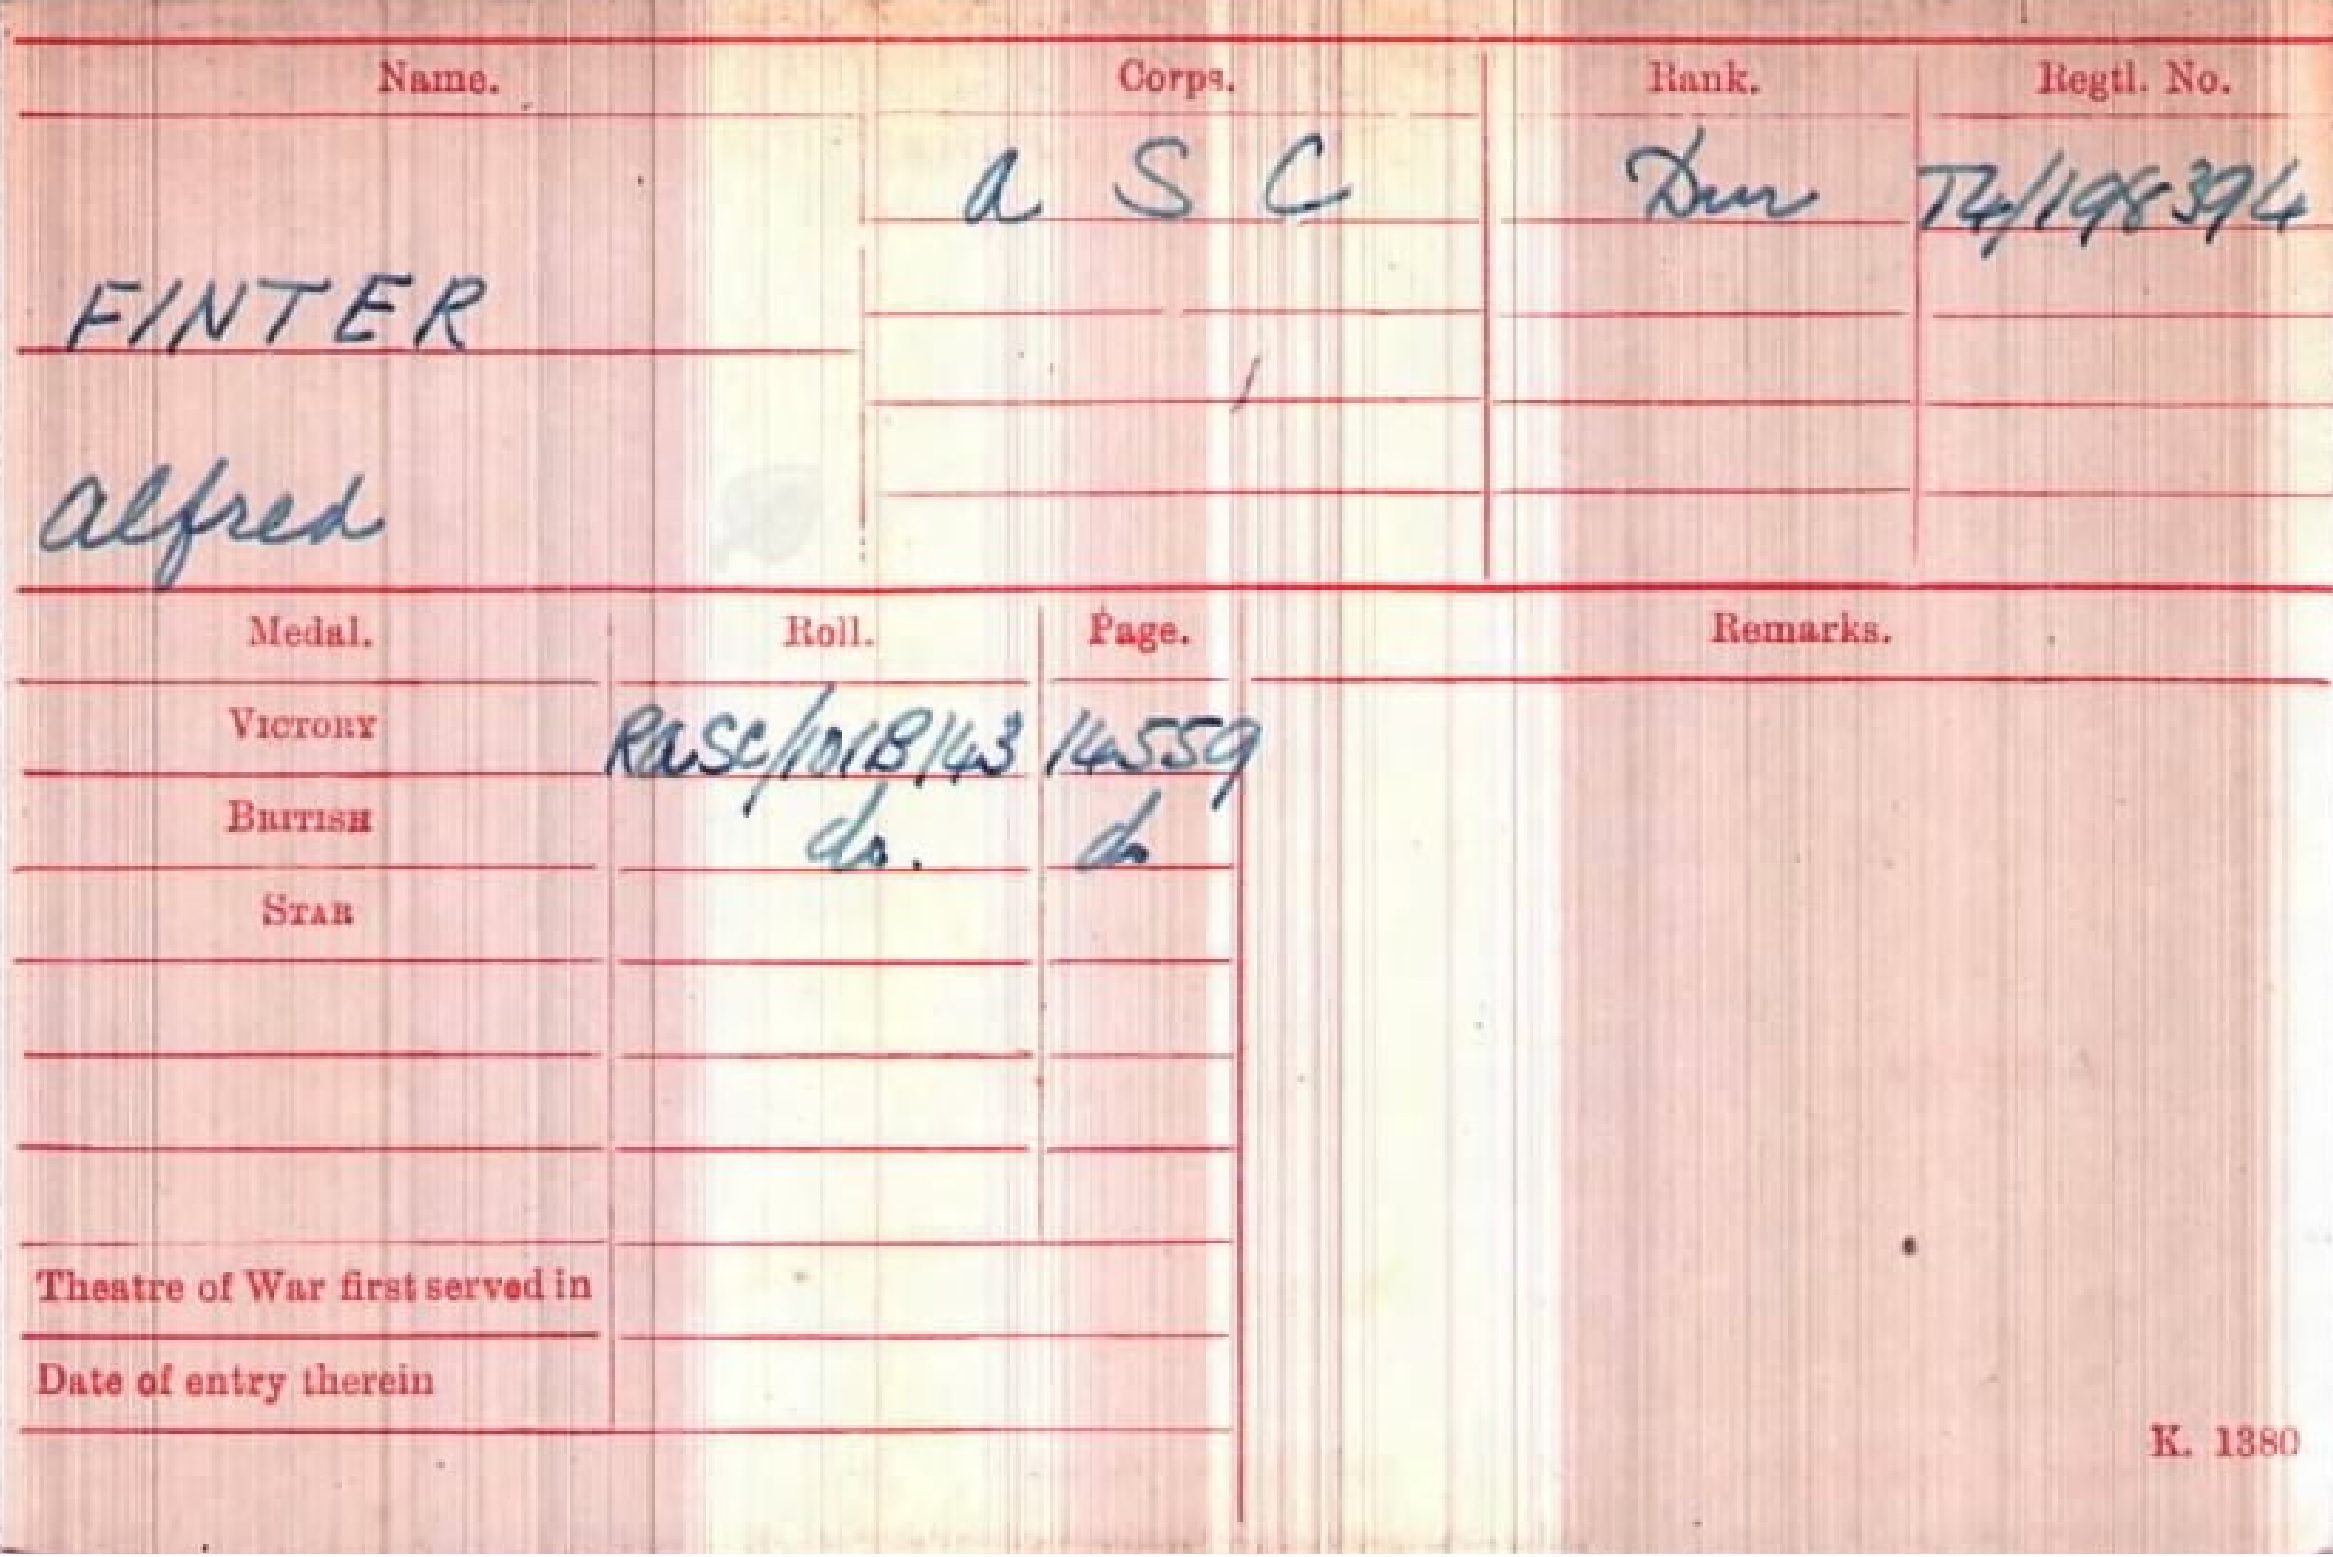 Name. Corps. Rank. Regtl. No.
A S C Dvr T4/198394
FINTER
Alfred
Medal. Roll. Page. Remarks.
VICTORY RASC/101B143 14559
BRITISH do. do
STAR
Theatre of War first served in
Date of entry therein
K. 1380